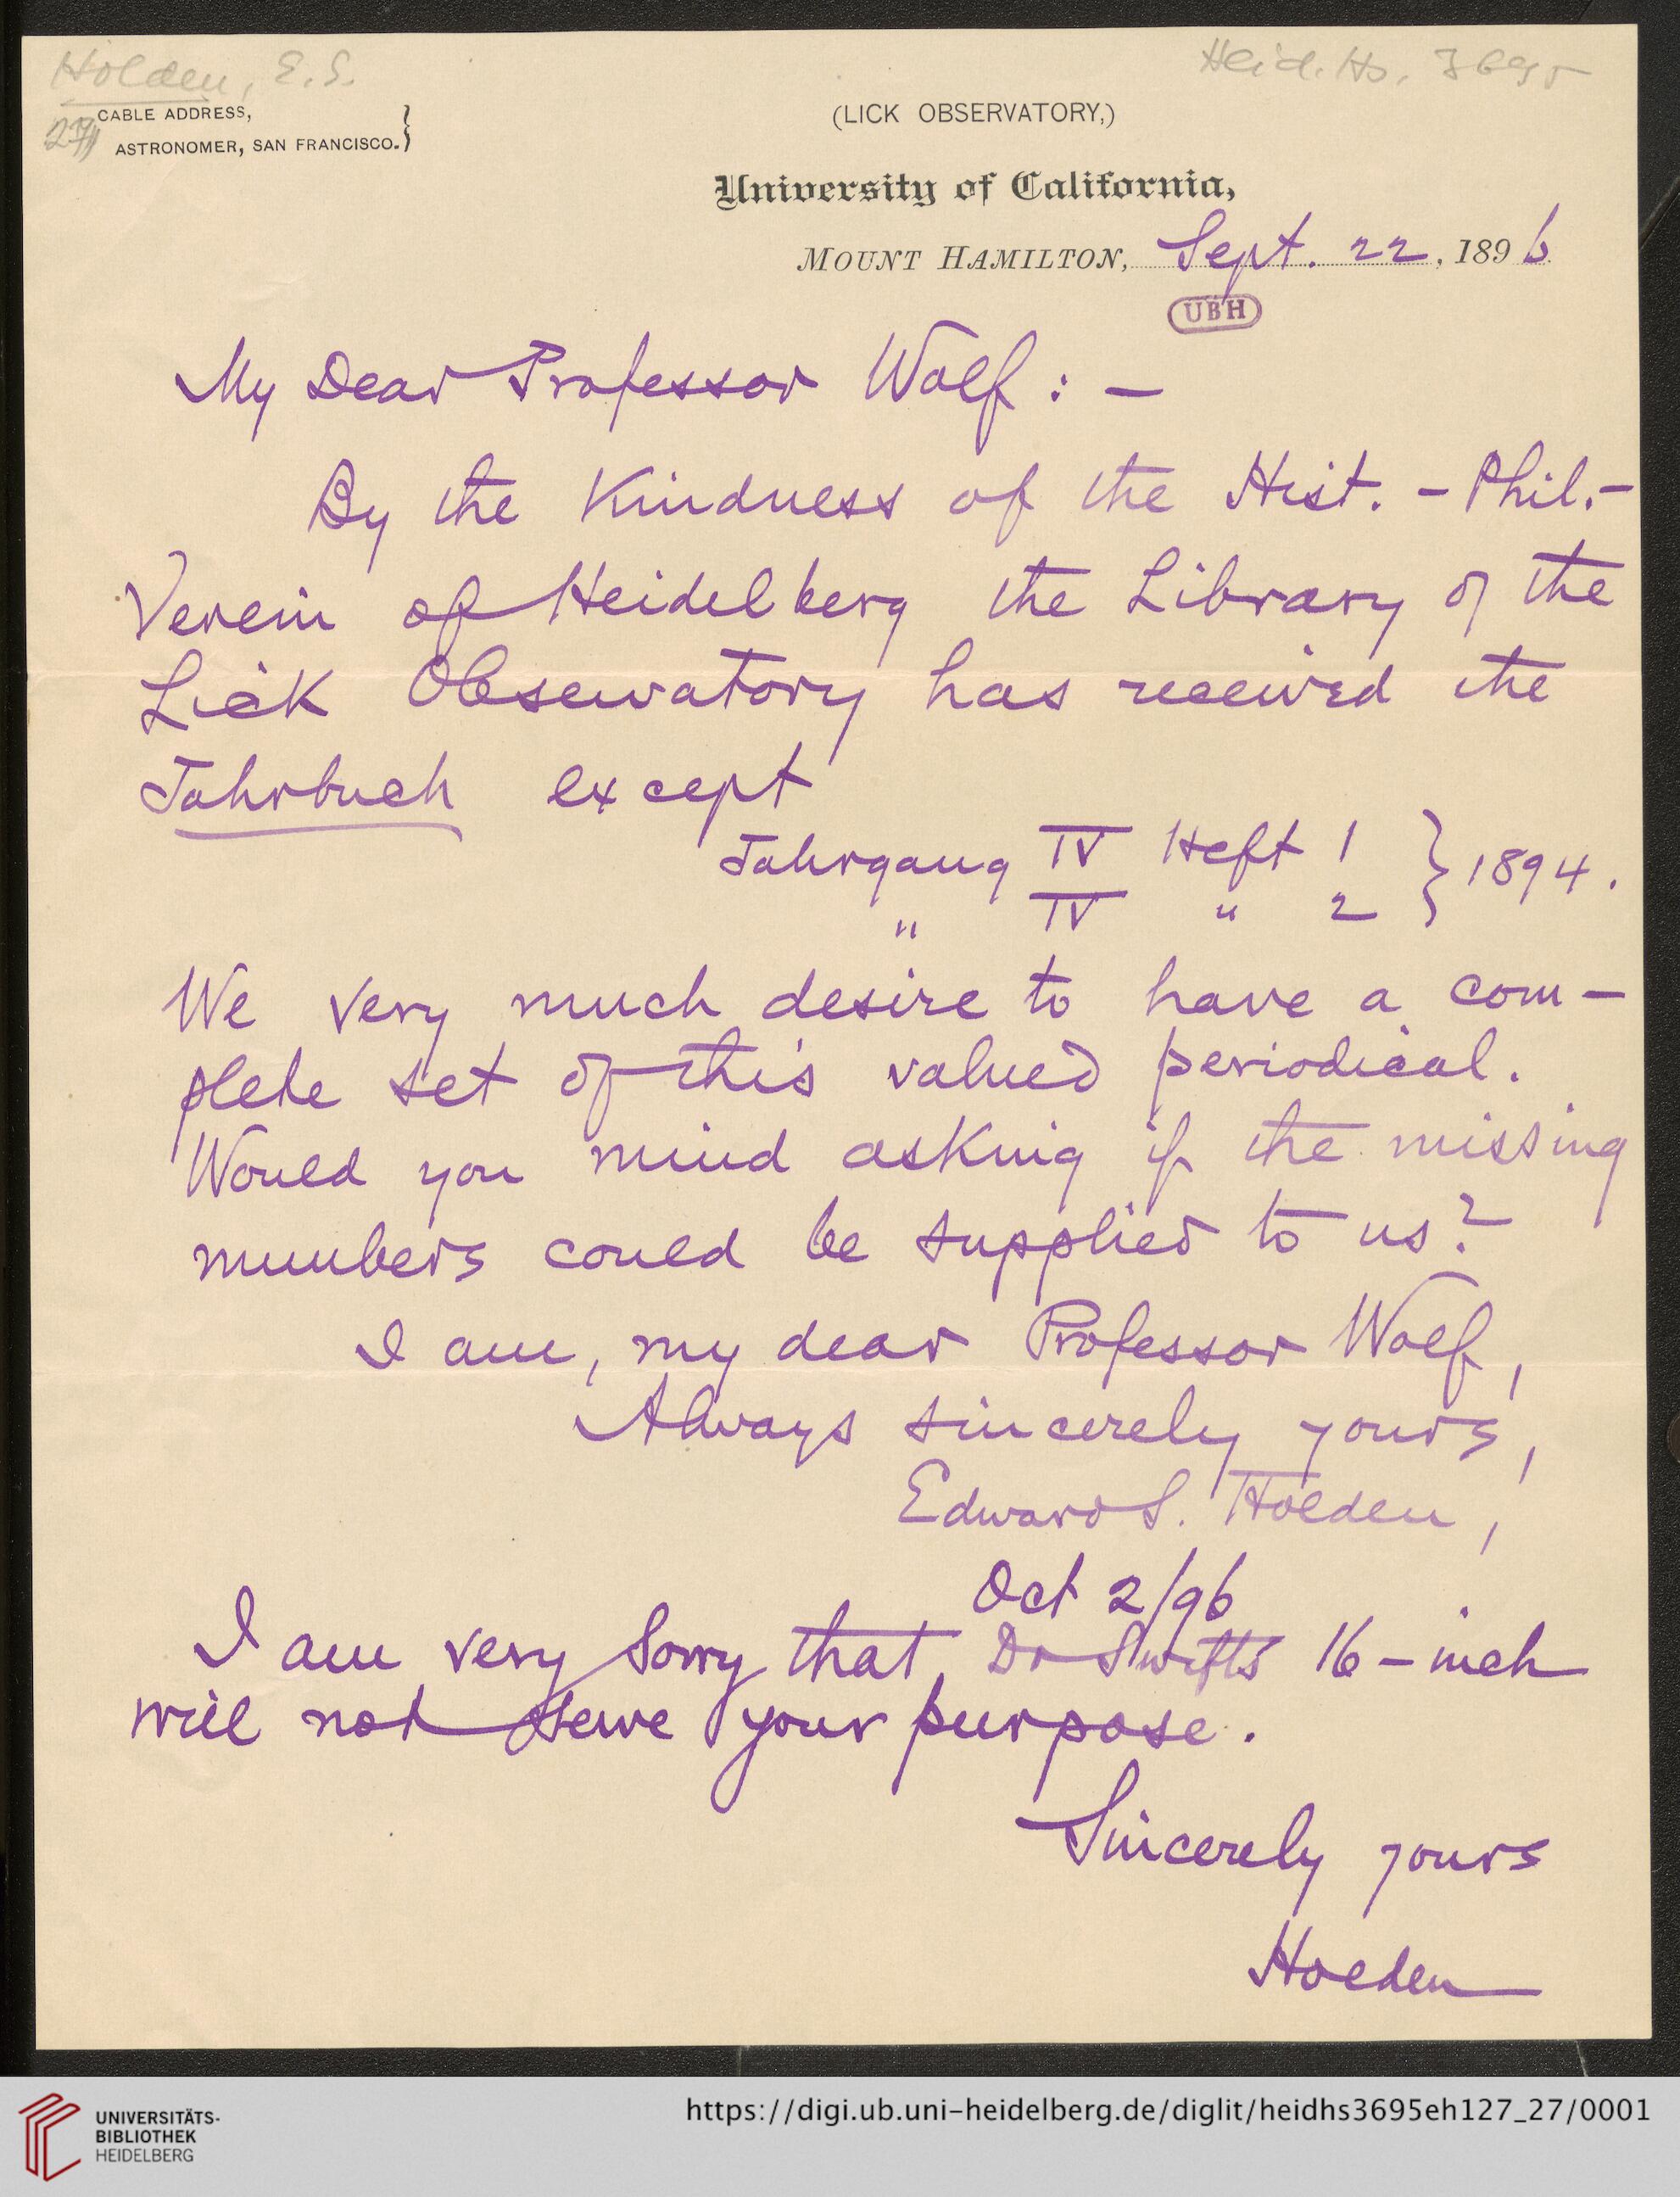 Holden, E. S.
27
Heid. Hs. 3695
CABLE ADDRESS,
ASTRONOMER, SAN FRANCISCO.}
(LICK OBSERVATORY,)
University of California,
MOUNT HAMILTON, Sept. 22, 1896
UBH
My Dear Professor Wolf: —
By the Kindness of the Hist. - Phil. -
Verein of Heidelberg the Library of the
Lick Observatory has received the
Jahrbuch except
Jahrgang IV Heft 1 } 1894.
" IV " 2
We very much desire to have a com-
plete set of this valued periodical.
Would you mind asking if the missing
numbers could be supplied to us?
I am, my dear Professor Wolf,
Always sincerely yours,
Edward S. Holden,
Oct 2/96
I am very sorry that Dr Swifts 16-inch
will not serve your purpose.
Sincerely yours
Holden
UNIVERSITÄTS-
BIBLIOTHEK
HEIDELBERG
https://digi.ub.uni-heidelberg.de/diglit/heidhs3695eh127_27/0001